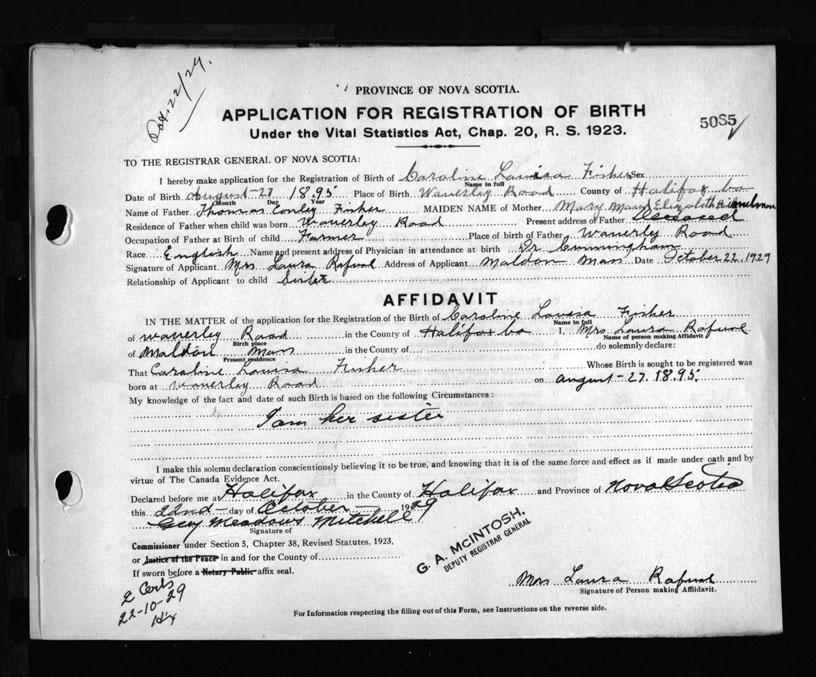 Oct. 22/29.
PROVINCE OF NOVA SCOTIA.
APPLICATION FOR REGISTRATION OF BIRTH
Under the Vital Statistics Act, Chap. 20, R. S. 1923.
5085
TO THE REGISTRAR GENERAL OF NOVA SCOTIA:
I hereby make application for the Registration of Birth of Caroline Louisa Fisher Sex
Name in full
Date of Birth August - 27 1895 Place of Birth Waverley Road County of Halifax Co
Month Day Year
Name of Father Thomas Conley Fisher MAIDEN NAME of Mother Mary Elizabeth
Residence of Father when child was born Waverley Road Present address of Father Deceased
Occupation of Father at Birth of child Farmer Place of birth of Father Waverly Road
Race English Name and present address of Physician in attendance at birth Dr Cunningham
Signature of Applicant Mrs Laura Rafuse Address of Applicant Maldon Mass Date October 22 1929
Relationship of Applicant to child Sister
AFFIDAVIT
IN THE MATTER of the application for the Registration of the Birth of Caroline Louisa Fisher
Name in full
of Waverley Road in the County of Halifax Co I, Mrs Laura Rafuse
Birth place Name of person making Affidavit
of Maldon Mass in the County of do solemnly declare:
Present residence
That Caroline Louisa Fisher Whose Birth is sought to be registered was
born at Waverley Road on August - 27. 1895.
My knowledge of the fact and date of such Birth is based on the following Circumstances:
I am her sister
I make this solemn declaration conscientiously believing it to be true, and knowing that it is of the same force and effect as if made under oath and by
virtue of The Canada Evidence Act.
Declared before me at Halifax in the County of Halifax and Province of Nova Scotia
this 22nd day of October 1929
Geo Meadows Mitchell
Signature of
Commissioner under Section 5, Chapter 38, Revised Statutes, 1923,
or Justice of the Peace in and for the County of
If sworn before a Notary Public affix seal.
G. A. McINTOSH,
DEPUTY REGISTRAR GENERAL
2 Certs
22-10-29
Hx
Mrs Laura Rafuse
Signature of Person making Affidavit.
For Information respecting the filling out of this Form, see Instructions on the reverse side.